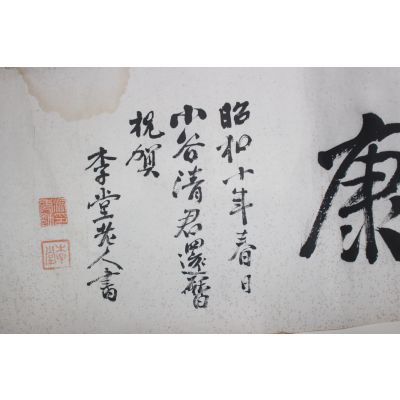 康
昭和十年春日
小谷清君還暦
祝賀
李堂老人書